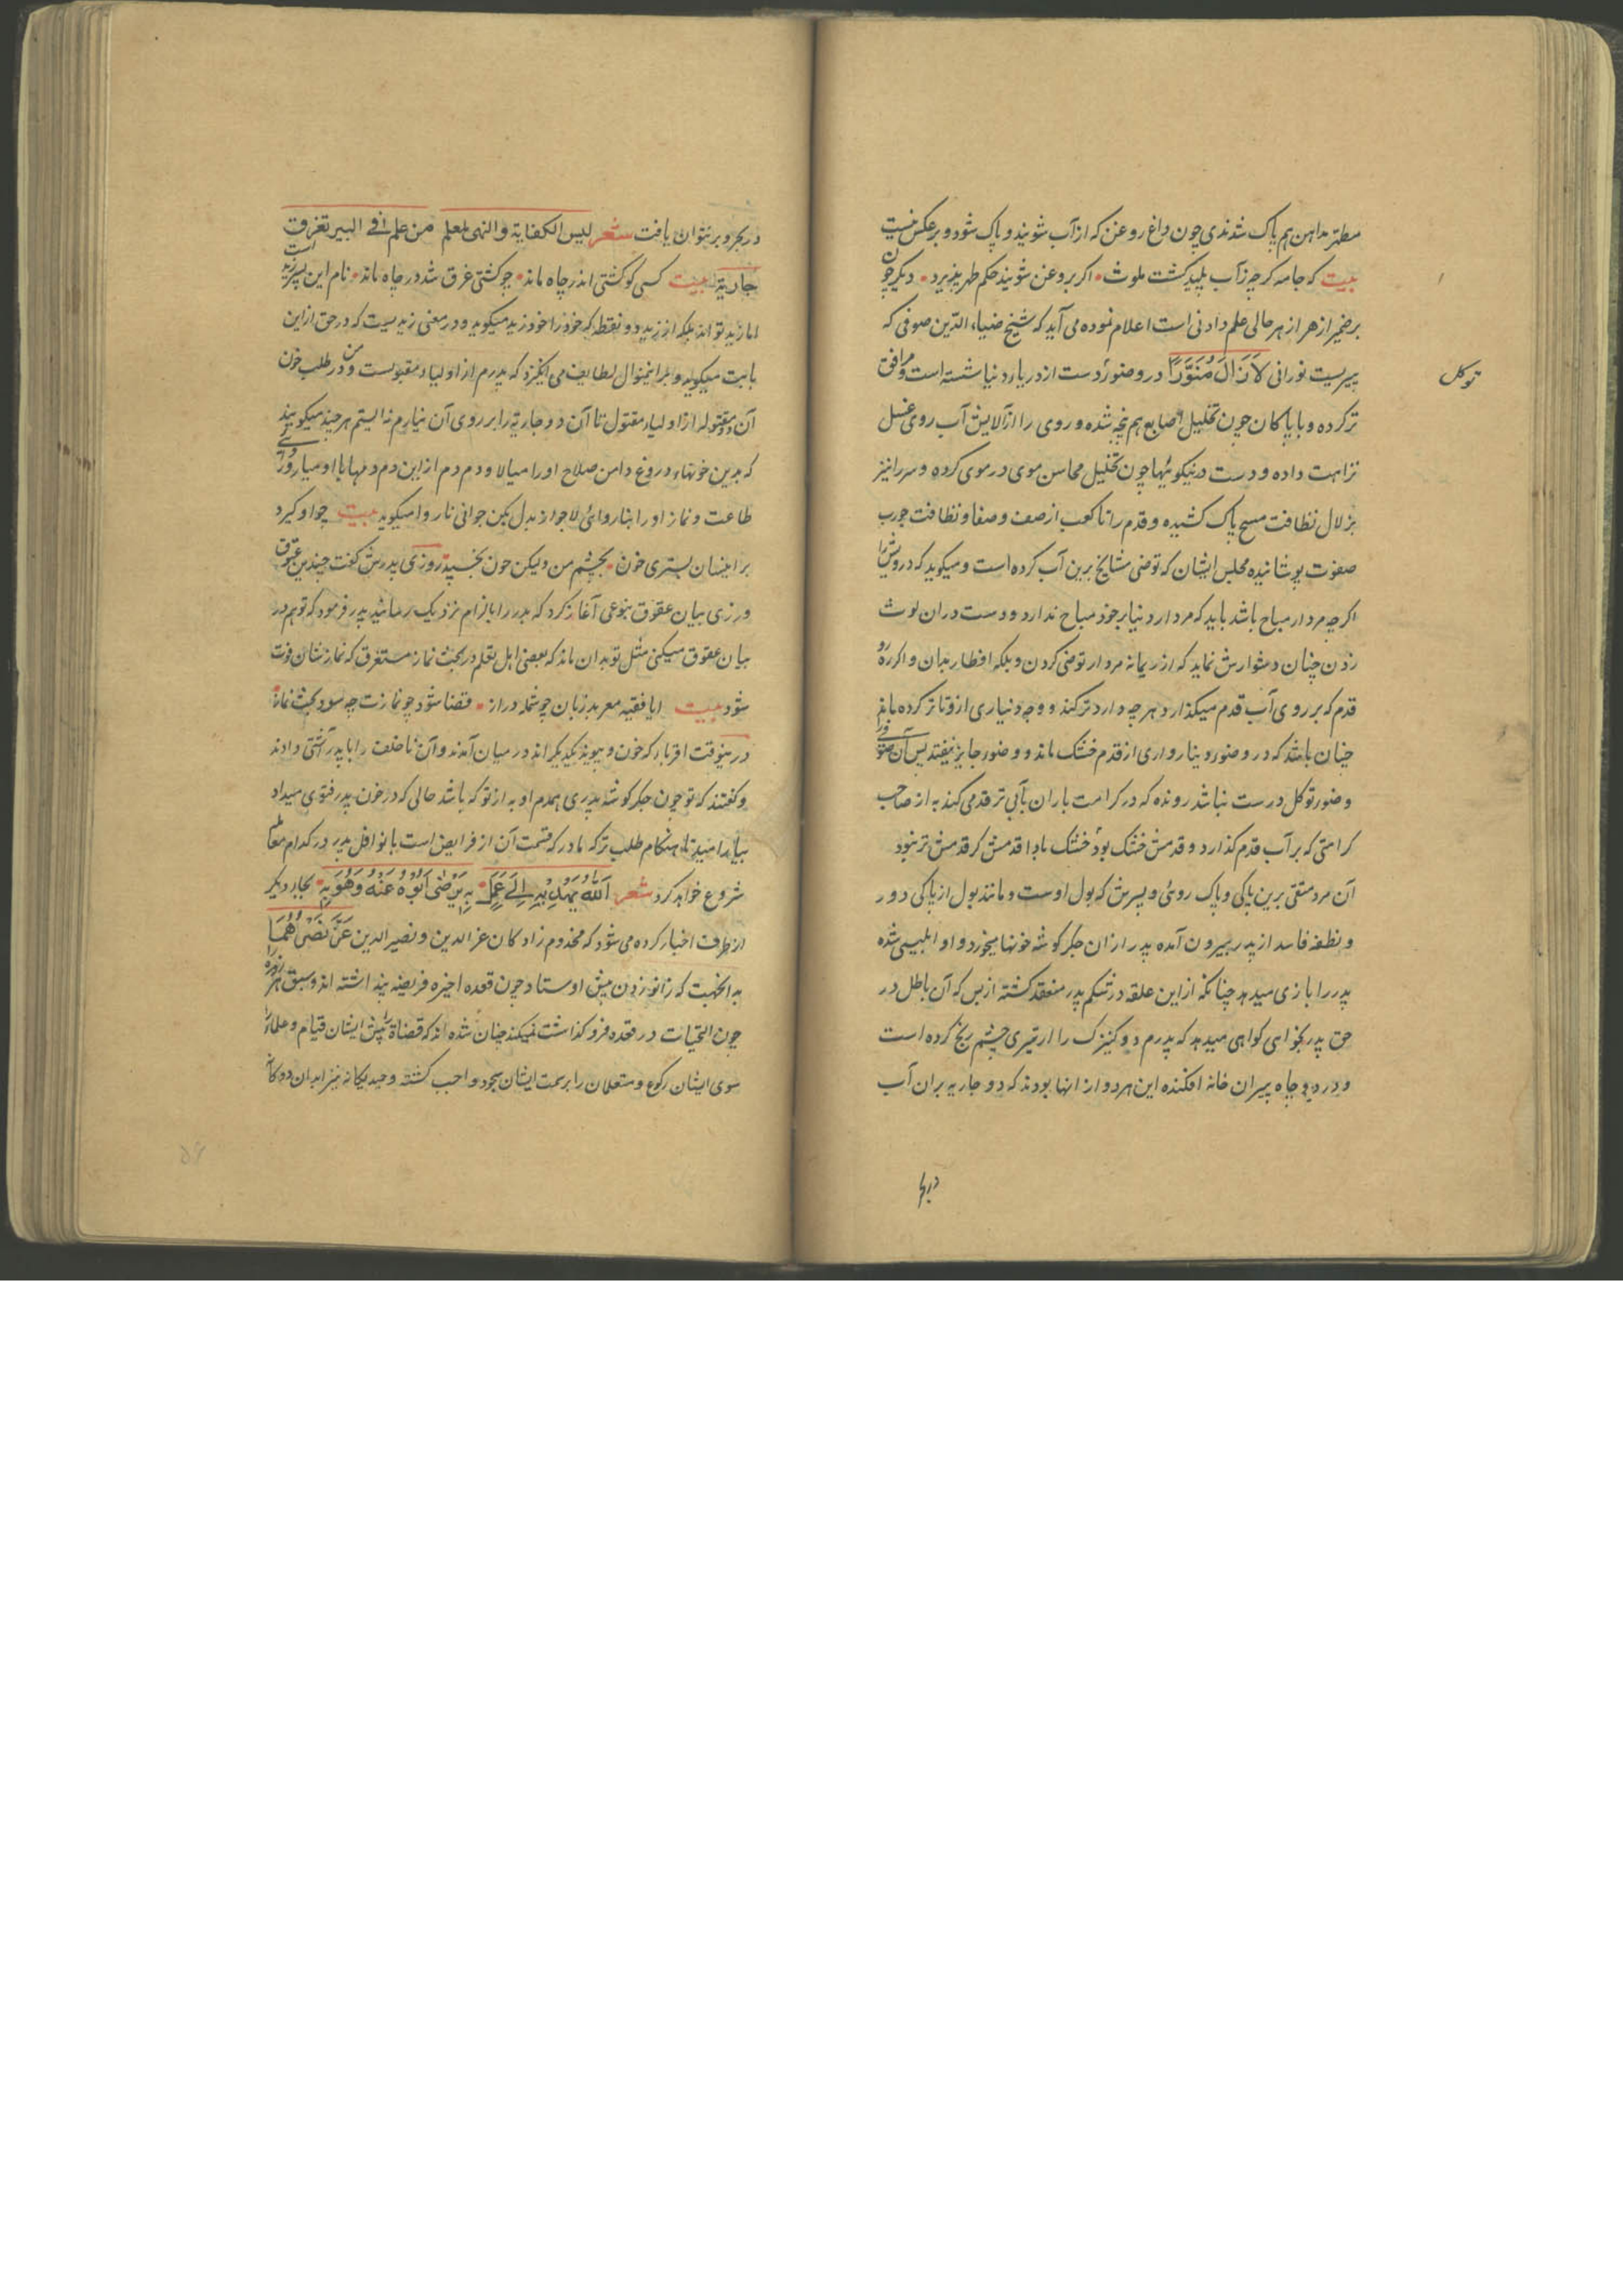 مطهر مداهن هم پاک شدندی چون داغ روغن که از آب شویند و پاک شود و بر عکس نیست
بیت که جامه کرچه ز آب پلید کشت ملوث اکر بروغن شویند حکم طهر پذیرد دیکر چون
بر ضمیر ازهر از هر حالی علم دادنی است اعلام نموده می آید که شیخ ضیاء الدین صوفی که
توکل
پیریست نورانی لازال منورا در وضو دست از دریاء دنیا شسته است و مرافق
ترکرده و با پاکان چون تخلیل اصابع هم پنجه شده و روی را از آلایش آب روی غسل
نزاهت داده و دست در نیکوئیها چون تخلیل محاسن موی در موی کرده و سر را نیز
بزلال نظافت مسح پاک کشیده و قدم را تا کعب از صف و صفا و نظافت جورب
صفوت پوشانیده مجلس ایشان که توضی مشایخ برین آب کرده است و میکوید که درویش را
اکرچه مردار مباح باشد باید که مردار دنیا بر خود مباح ندارد و دست دران لوث
زدن چنان دشوارش نماید که از ریمانه مردار توضی کردن و بلکه افطار بدان و اکر
قدم که بر روی آب قدم میکذارد هر چه دارد ترکند و وجه دنیاری ازو تا ترکرده ماند
چنان باشد که در وضو دینارواری از قدم خشک ماند و وضو جایز نیفتد پس آن
وضو توکل درست نباشد رونده که در کرامت باران بآبی تر قدمی کند به از صاحب
کرامتی که بر آب قدم کذارد و قدمش خشک بود خشک بادا قدمش کر قدمش تر نبود
آن مرد متقی برین پاکی و پاک روئی و پسرش که بول اوست و مانند بول از پاکی دور
و نطفه فاسد از پدر بیرون آمده پدر را زان جکر کوشه خونها میخورد و او ابلیسی شده
پدر را بازی میدهد چنانکه از این علقه در شکم پدر منعقد کشته از بس که آن باطل در
حق پدر بخواسی کواهی میدهد که پدرم دو کنیزک را از تیری چشم رنج کرده است
و در دو چاه پیران خانه افکنده این هر دو از انها بودند که دو جاریه بران آب
در بحر و بر نتوان یافت شعر لیس الکفایة والنهی لمعلم من علم فی البیر تغرق
جاریة بیت کسی کو کشتی اندر چاه ماند چو کشتی غرق شد در چاه ماند نام این پسر زید است
اما زید تو اند بلکه از زید دو نقطه که خود را خود زید میکوید و در معنی زید یست که در حق از این
بابت میکوید و بر این منوال لطایف می انکیزد که پدرم از اولیاء مقبولست و من در طلب خون
آن دو مقتوله از اولیاء مقتول تا آن دو جاریه را بر روی آن نیارم نه ایستم هر چند میکویند
که بدین خونهاء دروغ دامن صلاح او را میالا و دم دم از این دم دمها با او میار
طاعت و نماز او را بناروائی لاجواز بدل مکن جوانی ناروا میکوید بیت چو او کیرد
بر اینسان بستری خون بچشم من ولیکن خون بخسپد روزی پدرش کفت چندین عقوق
ورزی بیان عقوق بنوعی آغاز کرد که پدر را بالزام نزدیک رسانید پدر فرمود که تو هم در
بیان عقوق میکنی مثل تو بدان ماند که بعضی اهل تعلم در بحث نماز مستغرق که نمازشان فوت
شود بیت ایا فقیه معربد زبان چو شمله دراز قضا شود چو نمازت چه سود بحث نماز
در ینوقت اقربا که خون و پیوند یکدیکر اند در میان آمدند و آن ناخلف را با پدر آشتی دادند
و کفتند که تو چون جکر کوشه پدری همدم او به از تو که باشد حالی که در خون پدر فتوی میداد
بیارامید تا هنکام طلب ترکه مادر که قسمت آن از فرایض است با نوافل پدر در کدام معاملت
شروع خواهد کرد شعر الله یهدیه الی عمل به یرضی ابوه عنه وهو به بجار دیکر
از طرف اخبار کرده می شود که مخدوم زادکان عز الدین و نصیر الدین عز نصرهما
به انجهت که زانو زدن پیش اوستاد چون قعده اخیره فریضه پنداشته اند و سبق هر روزه را
چون التحیات در قعده فرو کذاشت نمیکنند چنان شده اند که قضاة را پیش ایشان قیام و علما را
سوی ایشان رکوع و متعلمان را بر سمت ایشان سجود واجب کشته وحید یکانه نیز